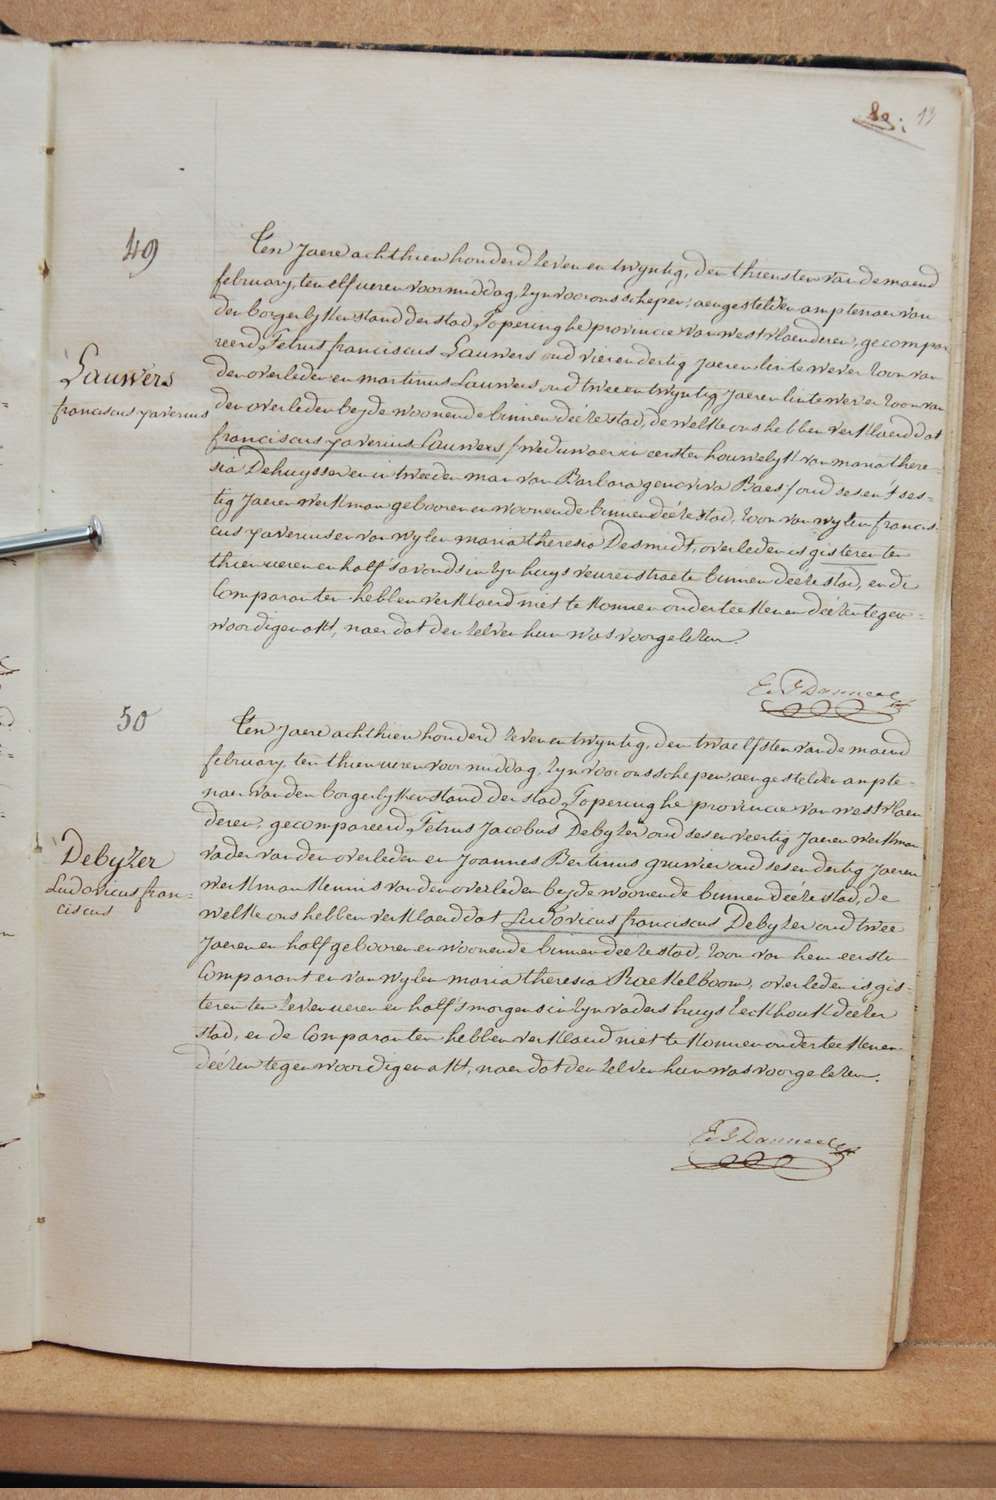 13
49
Ten Jaere achthien honderd zeven en twyntig, den thiensten van de maend
february, ten elf ueren voormiddag, zyn voor ons schepen, aengestelden amptenaer van
den borgerlyken stand der stad Poperinghe provincie van westvlaenderen, gecompa-
reerd, Petrus franciscus Lauwers oud vierendertig Jaeren lintewever zoon van
den overleden en martinus Lauwers oud twee en twyntig Jaeren lintewever zoon van
den overleden beyde woonende binnen deéze stad, de welke ons hebben verklaerd dat
franciscus xaverius Lauwers / weduwaer in eersten houwelyk van maria there-
sia Dehuysser en in tweeden man van Barbara genoviva Baes / oud ses en 't ses-
tig Jaeren werkman gebooren en woonende binnen deéze stad, zoon van wylen francis-
cus xaverius en van wylen maria theresia Desmidt, overleden is gisteren ten
thien ueren en half 's avonds in zyn huys veurenstraete binnen deeze stad, en de
Comparanten hebben verklaerd niet te konnen onderteekenen deézen tegen-
woordigen akt, naer dat den zelven hun was voorgelezen.
Lauwers
franciscus xaverius
50
Ten Jaere achthien honderd zeven en twyntig, den twaelfsten van de maend
february, ten thien ueren voormiddag, zyn voor ons schepen, aengestelden ampte-
naer van den borgerlyken stand der stad Poperinghe provincie van westvlaen
deren, gecompareerd, Petrus Jacobus Debyzer oud ses en veertig Jaeren werkman
vader van den overleden en Joannes Bertinus gruwier oud ses en dertig Jaeren
werkman kennis van den overléden beyde woonende binnen deéze stad, de
welke ons hebben verklaerd dat Ludovicus franciscus Debyzer oud twee
Jaeren en half gebooren en woonende binnen deéze stad, zoon van hem eerste
Comparant en van wylen maria theresia Roekelboom, overleden is gis-
teren ten zeven ueren en half 's morgens in zyn vaders huys Eeckhouk deezer
stad, en de Comparanten hebben verklaerd niet te konnen onderteekenen
deézen tegenwoordigen akt, naer dat den zelven hun was voorgelezen.
Debyzer
Ludovicus fran-
ciscus